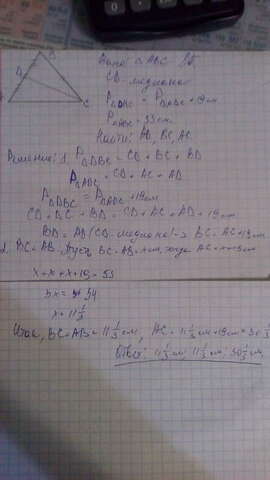 Дано: △ ABC р/б
CD - медиана
P△DBC = P△ADC + 19 см
P△ABC = 53 см
Найти: AB, BC, AC
B
D
C
Решение: 1. P△DBC = CD + BC + BD
P△ADC = CD + AC + AD
P△DBC = P△ADC + 19 см
CD + BC + BD = CD + AC + AD + 19 см
BD = AD (CD - медиана) => BC = AC + 19 см
2. BC = AB. Пусть BC = AB = x см, тогда AC = x + 19 см
x + x + x + 19 = 53
3x = 34
x = 11 1/3
Итак, BC = AB = 11 1/3 см, AC = 11 1/3 см + 19 см = 30 1/3
Ответ: 11 1/3 см; 11 1/3 см; 30 1/3 см.